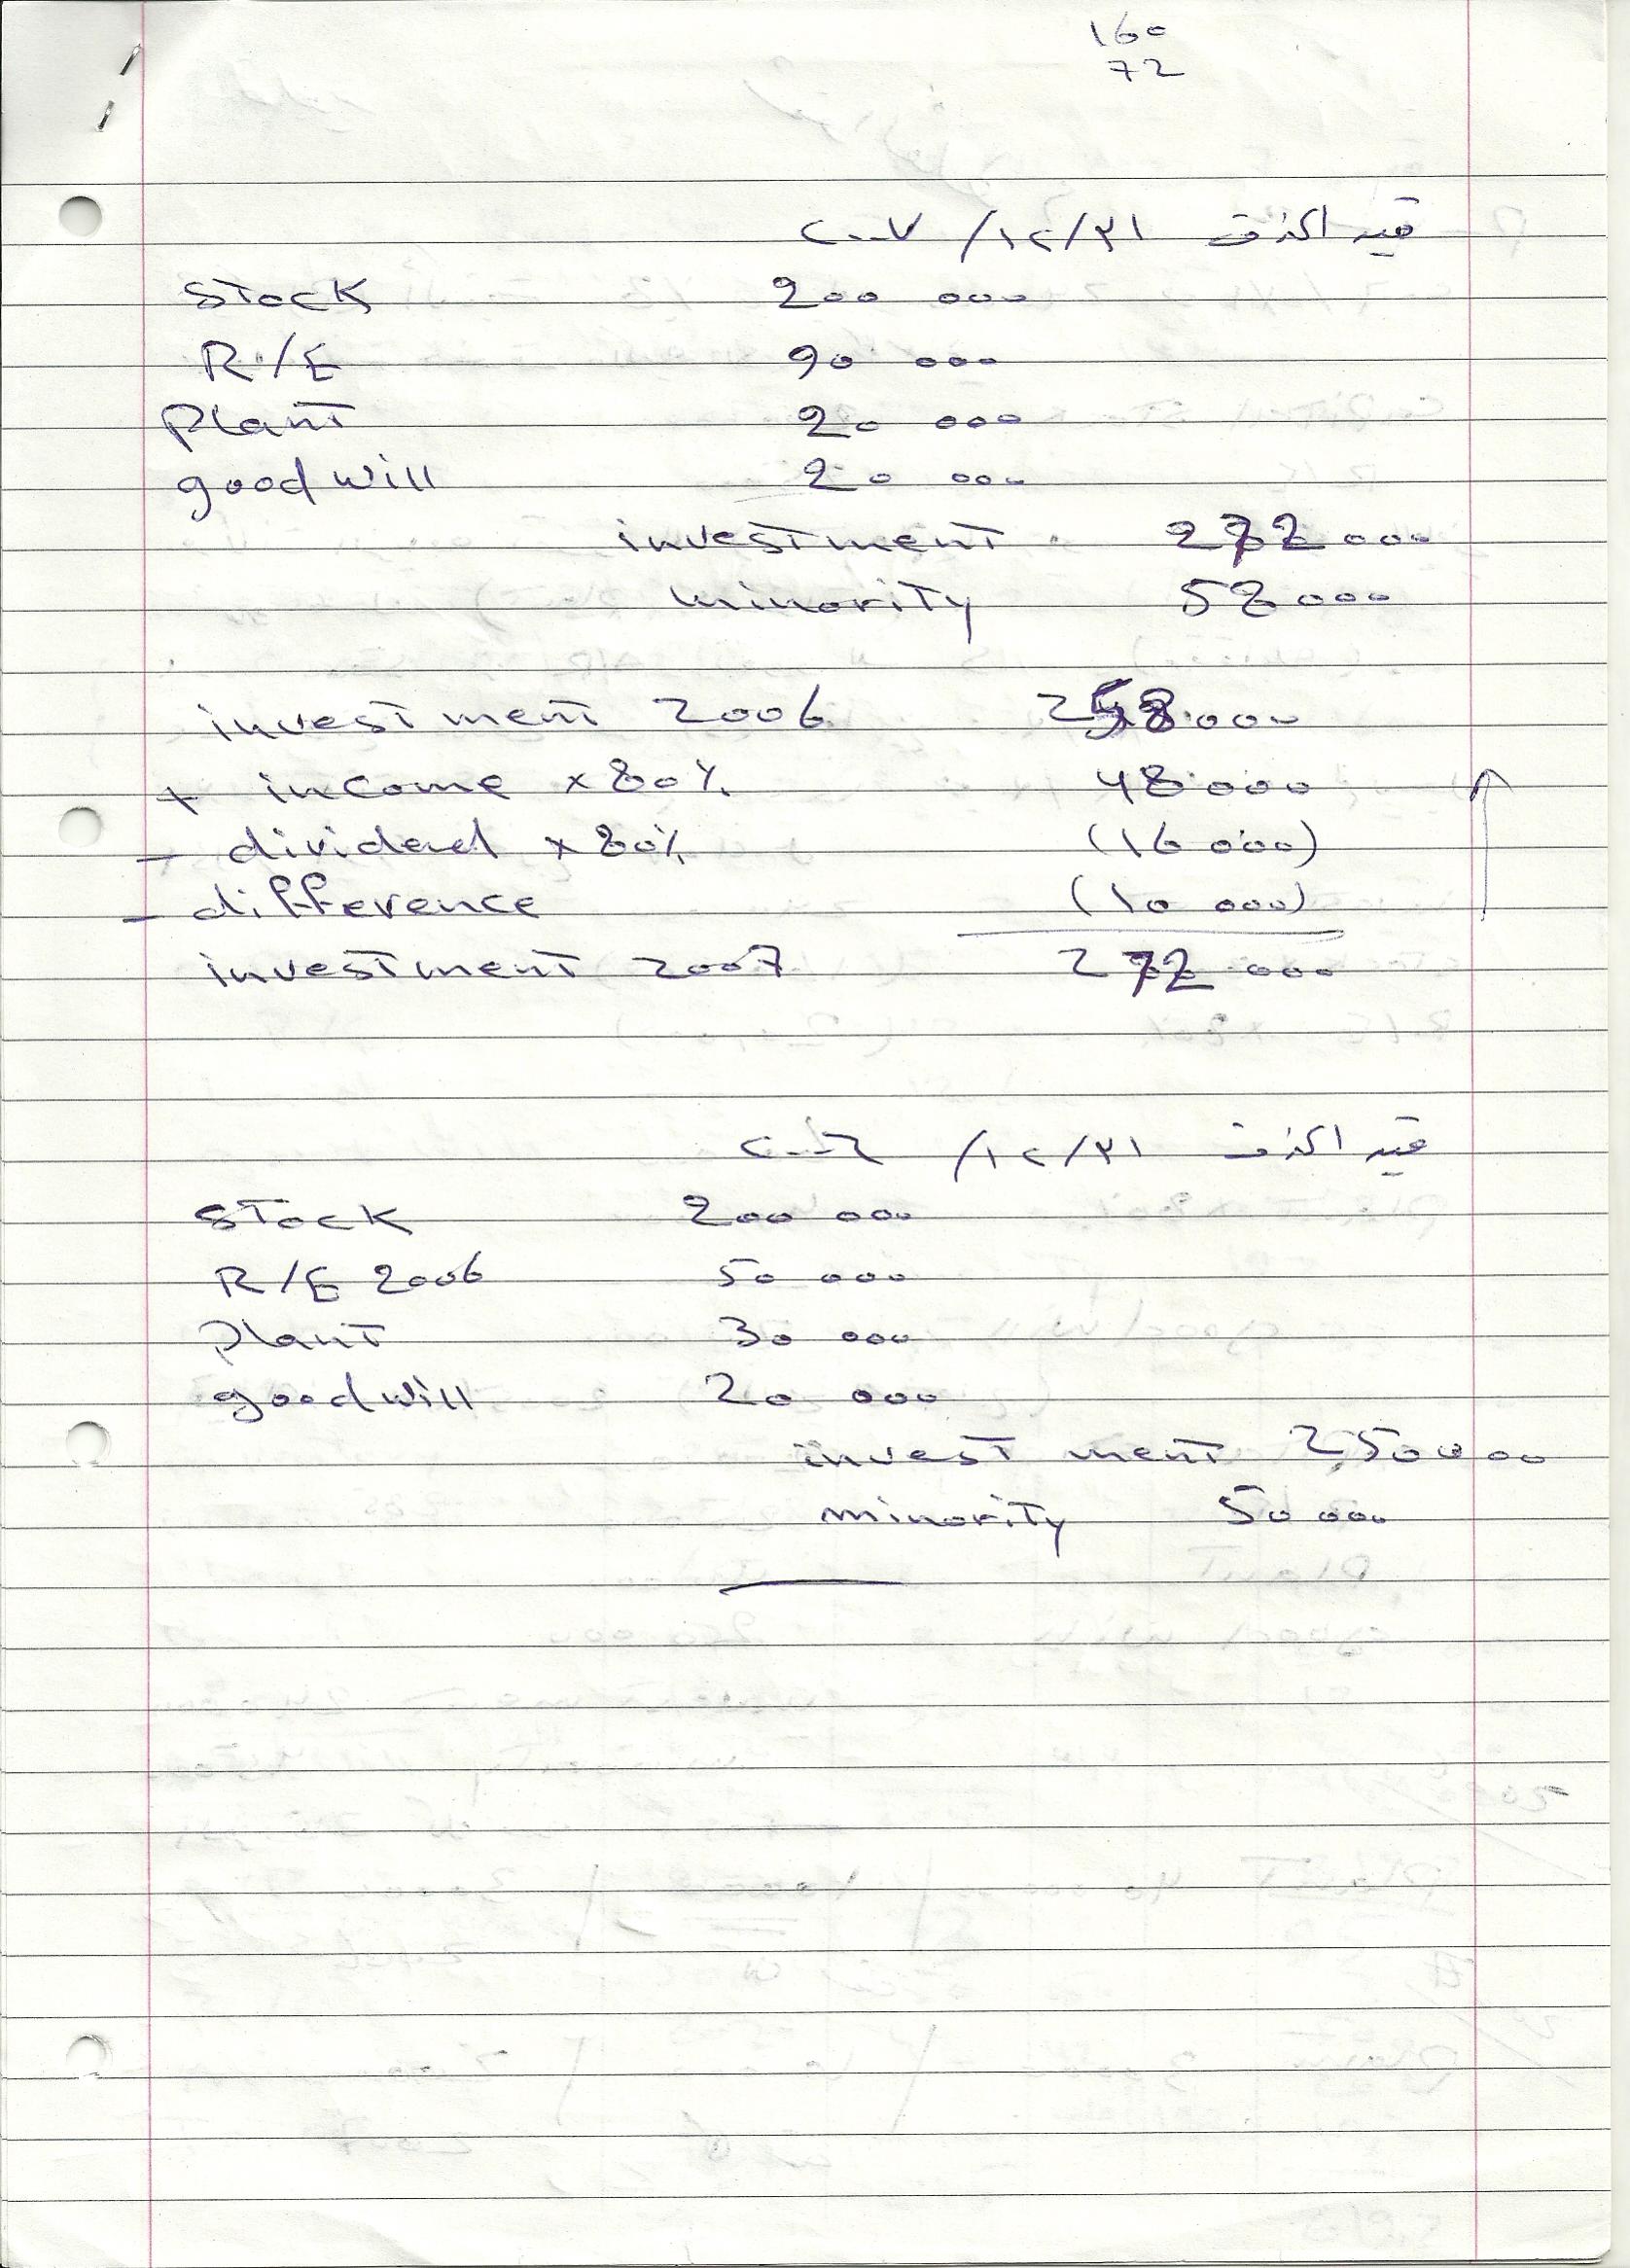 160
72
قيد الحذف ٣١/١٢/ ٢٠٠٧
Stock 200 000
R/E 90 000
Plant 20 000
good will 20 000
investment 272 000
minority 58 000
investment 2006 000
+ income x 80% 48 000
- dividend x 80% (16 000)
- difference (10 000)
investment 2007 272 000
قيد الحذف ٣١/١٢/
Stock 200 000
R/E 2006 50 000
Plant 30 000
good will 20 000
invest ment 250 000
minority 50 000